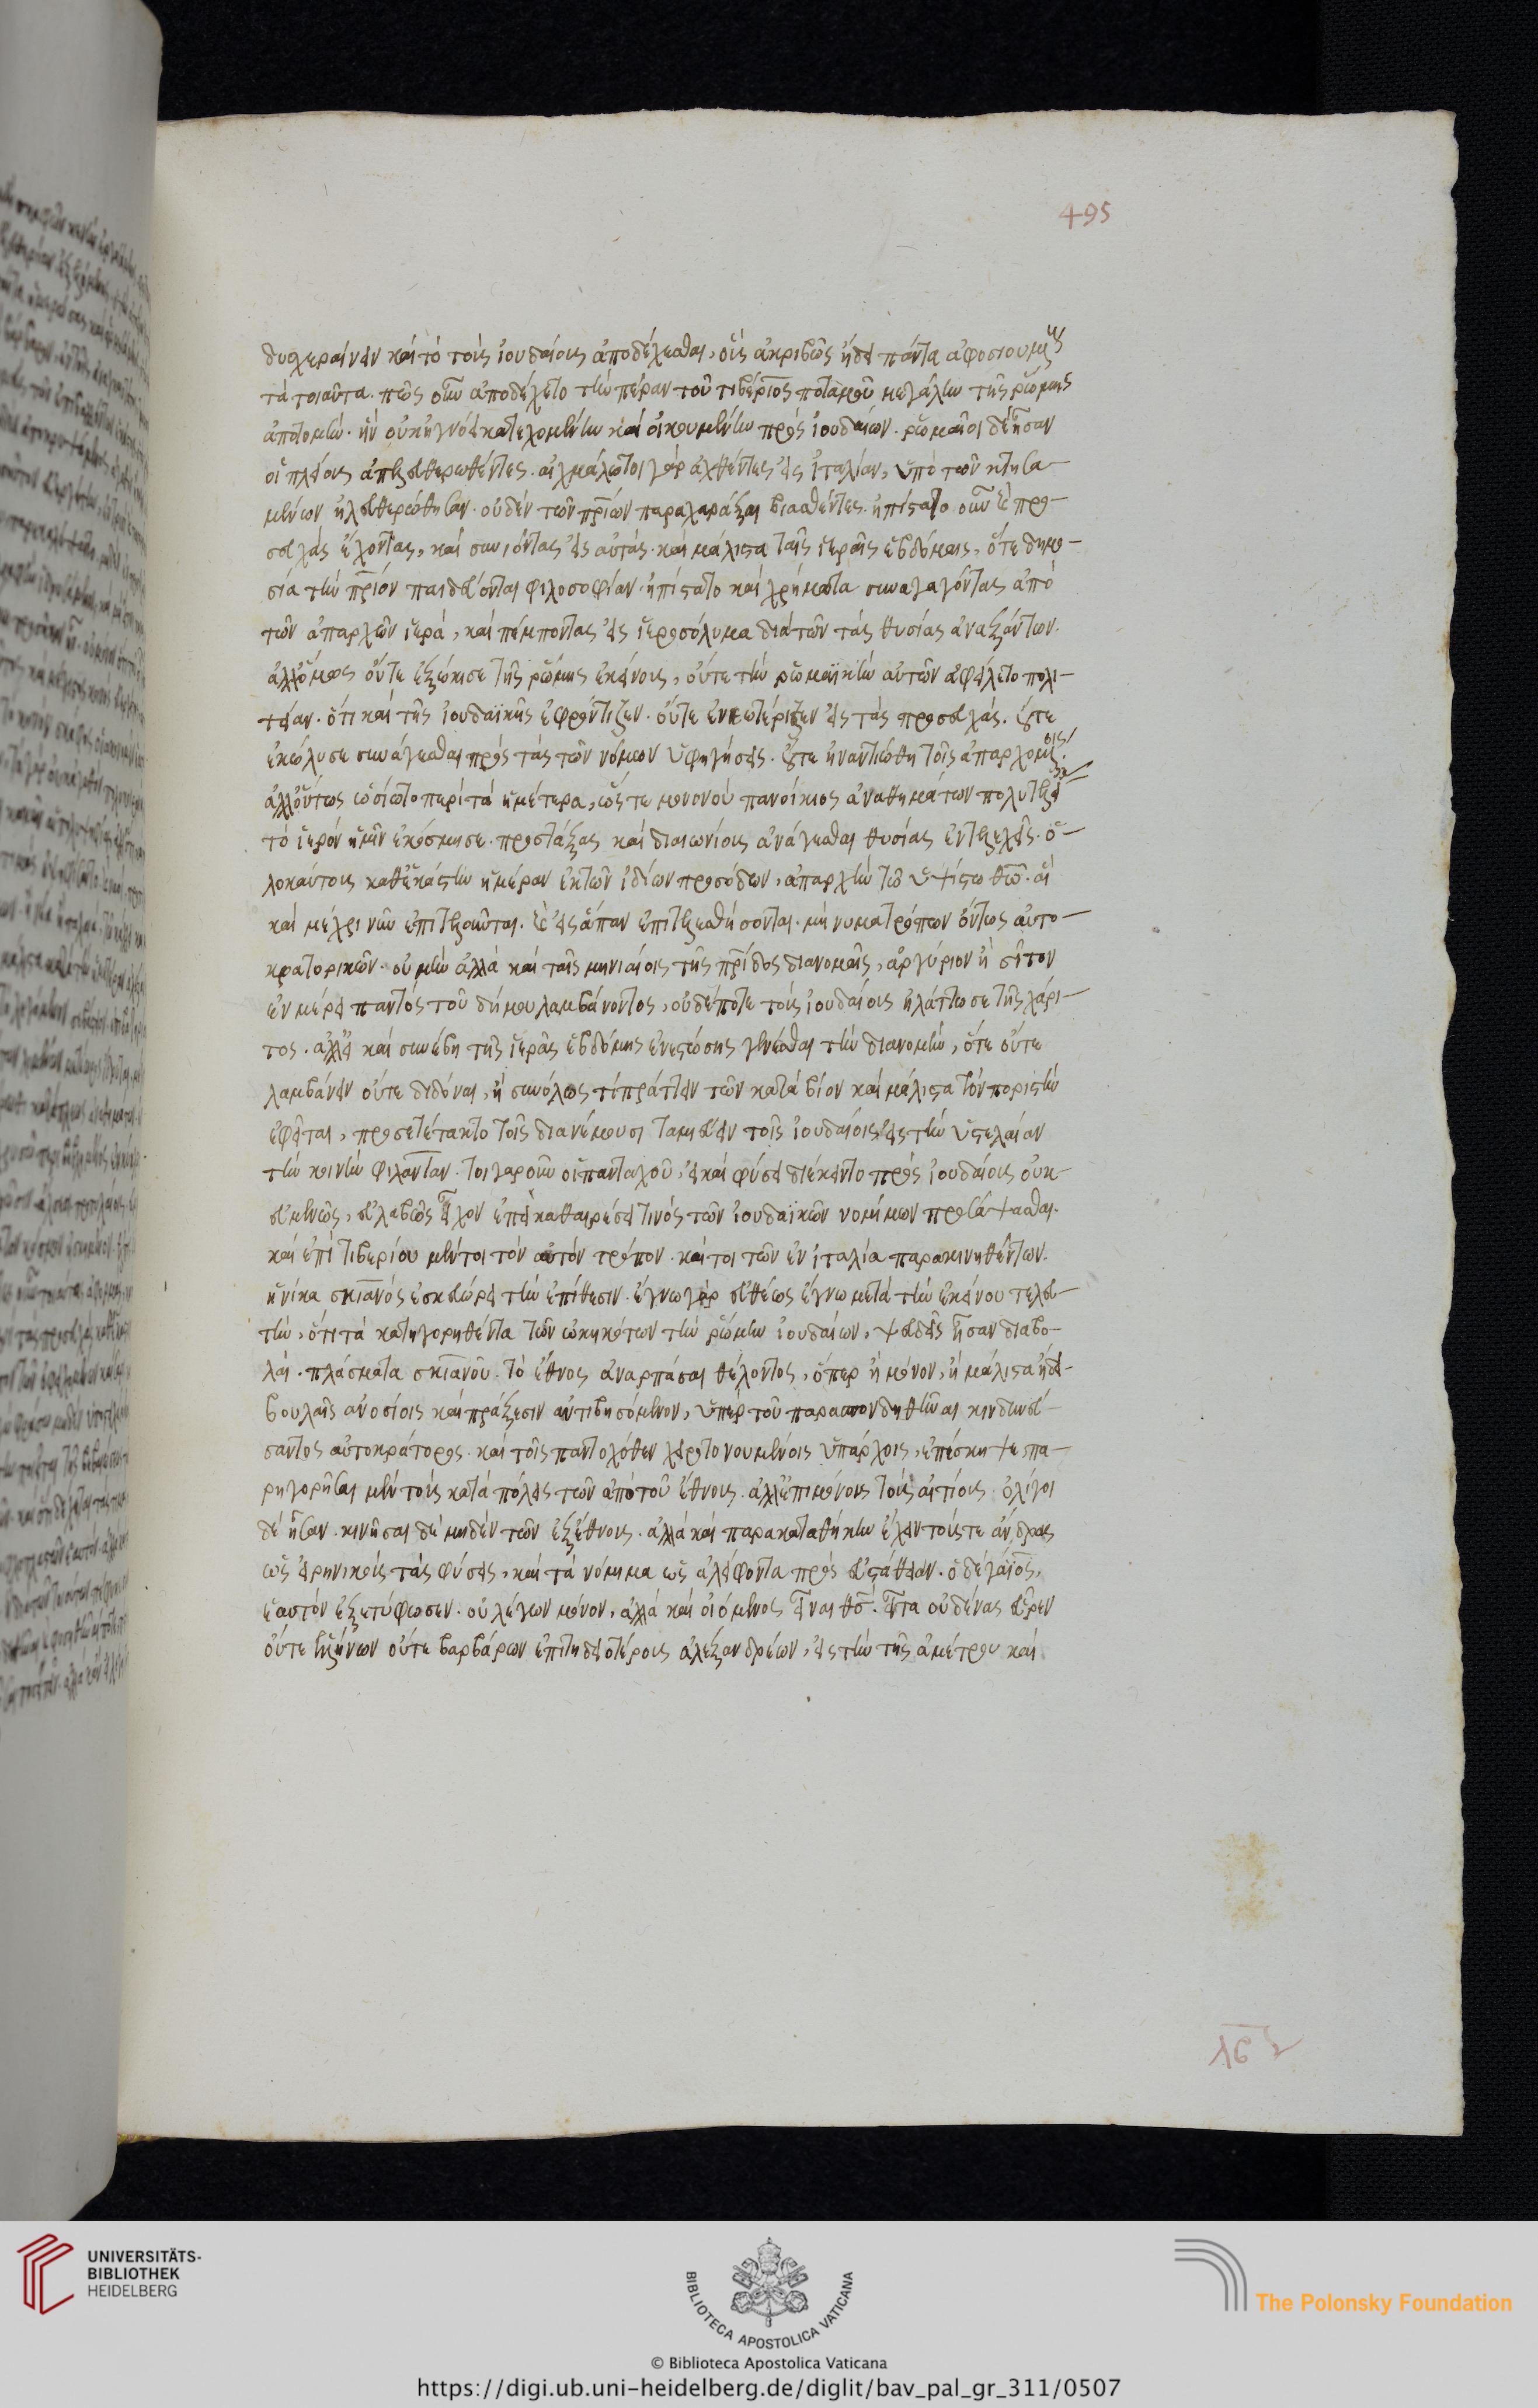 495
δυσχεραίνειν καὶ τὸ τοὺς ἰουδαίους ἀποδέχεσθαι, οὓς ἀκριβῶς ᾔδει πάντα ἀφοσιουμένους
τὰ τοιαῦτα. πῶς οὖν ἀπεδέχετο τὴν πέραν τοῦ τιβέριος ποταμοῦ μεγάλην τῆς ῥώμης
ἀποτομὴν. ἣν οὐκ ἠγνόει κατεχομένην καὶ οἰκουμένην πρὸς ἰουδαίων. ῥωμαῖοι δὲ ἦσαν
οἱ πλείους ἀπελευθερωθέντες. αἰχμάλωτοι γὰρ ἀχθέντες εἰς ἰταλίαν, ὑπὸ τῶν κτησα
μένων ἠλευθερώθησαν. οὐδὲν τῶν πρίων παραχαράξαι βιασθέντες. ἠπίστατο οὖν καὶ προ
σευχὰς ἔχοντας, καὶ συνιόντας εἰς αὐτὰς. καὶ μάλιστα ταῖς ἱεραῖς ἑβδόμαις, ὅτε δημο
σία τὴν πριον παιδεύονται φιλοσοφίαν. ἠπίστατο καὶ χρήματα συναγαγόντας ἀπὸ
τῶν ἀπαρχῶν ἱερὰ, καὶ πέμποντας εἰς ἱεροσόλυμα διὰ τῶν τὰς θυσίας ἀναξάντων.
ἀλλ' ὅμως οὔτε ἐξώκισε τῆς ῥώμης ἐκείνους, οὔτε τὴν ῥωμαϊκὴν αὐτῶν ἀφείλετο πολι
τείαν. ὅτι καὶ τῆς ἰουδαϊκῆς ἐφρόντιζεν. οὔτε ἐνεωτέριζεν εἰς τὰς προσευχάς. οὔτε
ἐκώλυσε συνάγεσθαι πρὸς τὰς τῶν νόμων ὑφηγήσεις. οὔτε ἠναντιώθη τοῖς ἀπαρχομένοις.
ἀλλ' οὕτως ὡσίωτο περὶ τὰ ἡμέτερα, ὥστε μονονοὺ πανοίκιος ἀναθημάτων πολυτελείαις
τὸ ἱερὸν ἡμῶν ἐκόσμησε. προστάξας καὶ διαιωνίους ἀνάγεσθαι θυσίας ἐντελεχεῖς. ὁ
λοκαύτους καθ' ἑκάστην ἡμέραν ἐκ τῶν ἰδίων προσόδων, ἀπαρχὴν τῶ ὑψίστω θῶ. αἳ
καὶ μέχρι νῦν ἐπιτελοῦνται. καὶ εἰς ἅπαν ἐπιτελεσθήσονται. μήνυμα τρόπων ὄντως αὐτο
κρατορικῶν. οὐ μὴν ἀλλὰ καὶ ταῖς μηνιαίοις τῆς πρίδος διανομαῖς, ἀργύριον ἢ σῖτον
ἐν μέρει παντὸς τοῦ δήμου λαμβάνοντος, οὐδέποτε τοὺς ἰουδαίους ἠλάττωσε τῆς χάρι
τος. ἀλλ' εἰ καὶ συνέβη τῆς ἱερᾶς ἑβδόμης ἐνεστώσης γενέσθαι τὴν διανομὴν, ὅτε οὔτε
λαμβάνειν οὔτε διδόναι, ἢ συνόλως τι πράττειν τῶν κατὰ βίον καὶ μάλιστα τὸν ποριστὴν
ἐφεῖται, προσετέτακτο τοῖς διανέμουσι ταμιεύειν τοῖς ἰουδαίοις εἰς τὴν ὑστεραίαν
τὴν κοινὴν φιλανίαν. τοιγαροῦν οἱ πανταχοῦ, εἰ καὶ φύσει διέκειντο πρὸς ἰουδαίους οὐκ
εὐμενῶς, εὐλαβῶς εἶχον ἐπὶ καθαιρέσει τινὸς τῶν ἰουδαϊκῶν νομίμων προσάψασθαι.
καὶ ἐπὶ τιβερίου μέντοι τὸν αὐτὸν τρόπον. καίτοι τῶν ἐν ἰταλία παρακινηθέντων.
ἡνίκα σκιανὸς ἐσκευώρει τὴν ἐπίθεσιν. ἔγνω γὰρ εὐθέως ἔγνω μετὰ τὴν ἐκείνου τελευ
τὴν, ὅτι τὰ κατηγορηθέντα τῶν ὠκηκότων τὴν ῥώμην ἰουδαίων, ψευδεῖς ἦσαν διαβο
λαὶ. πλάσματα σκιανοῦ. τὸ ἔθνος ἀναρπάσαι θέλοντος, ὅπερ ἢ μόνον, ἢ μάλιστα ᾔδει
βουλαῖς ἀνοσίοις καὶ πράξεσιν ἀντιβησόμενον, ὑπὲρ τοῦ παρασπονδηθῆναι κινδυνεύ
σαντος αὐτοκράτορος. καὶ τοῖς πανταχόθεν χειροτονουμένοις ὑπάρχοις, ἐπέσκηψε, πα
ρηγορῆσαι μὲν τοὺς κατὰ πόλεις τῶν ἀπὸ τοῦ ἔθνους. ἀλλ' ἐπὶ μόνους τοὺς αἰτίους. ὀλίγοι
δὲ ἦσαν. κινῆσαι δὲ μηδὲν τῶν ἐξ ἔθνους. ἀλλὰ καὶ παρακαταθήκην ἔχειν τούς τε ἄνδρας
ὡς εἰρηνικοὺς τὰς φύσεις, καὶ τὰ νόμιμα ὡς ἀλείφοντα πρὸς εὐστάθειαν. ὁ δὲ γάϊος,
ἑαυτὸν ἐξετύφωσεν. οὐ λέγων μόνον, ἀλλὰ καὶ οἰόμενος εἶναι θς. εἶτα οὐδένας εὗρεν
οὔτε ἑλλήνων οὔτε βαρβάρων ἐπιτηδειοτέρους ἀλεξανδρέων, εἰς τὴν τῆς ἀμέτρου καὶ
UNIVERSITÄTS-
BIBLIOTHEK
HEIDELBERG
BIBLIOTECA APOSTOLICA VATICANA
© Biblioteca Apostolica Vaticana
The Polonsky Foundation
https://digi.ub.uni-heidelberg.de/diglit/bav_pal_gr_311/0507